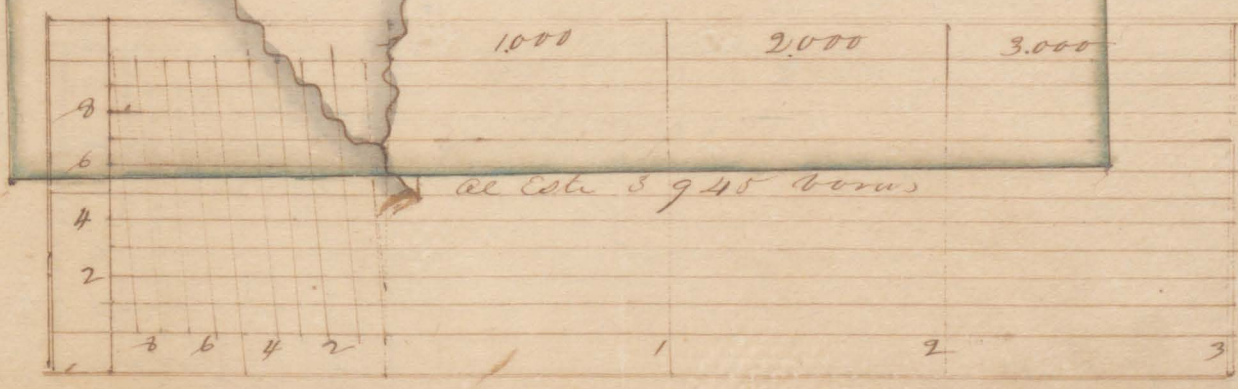 1.000 2.000 3.000
8
6
Al Este 3 945 varas
4
2
8 6 4 2 1 2 3